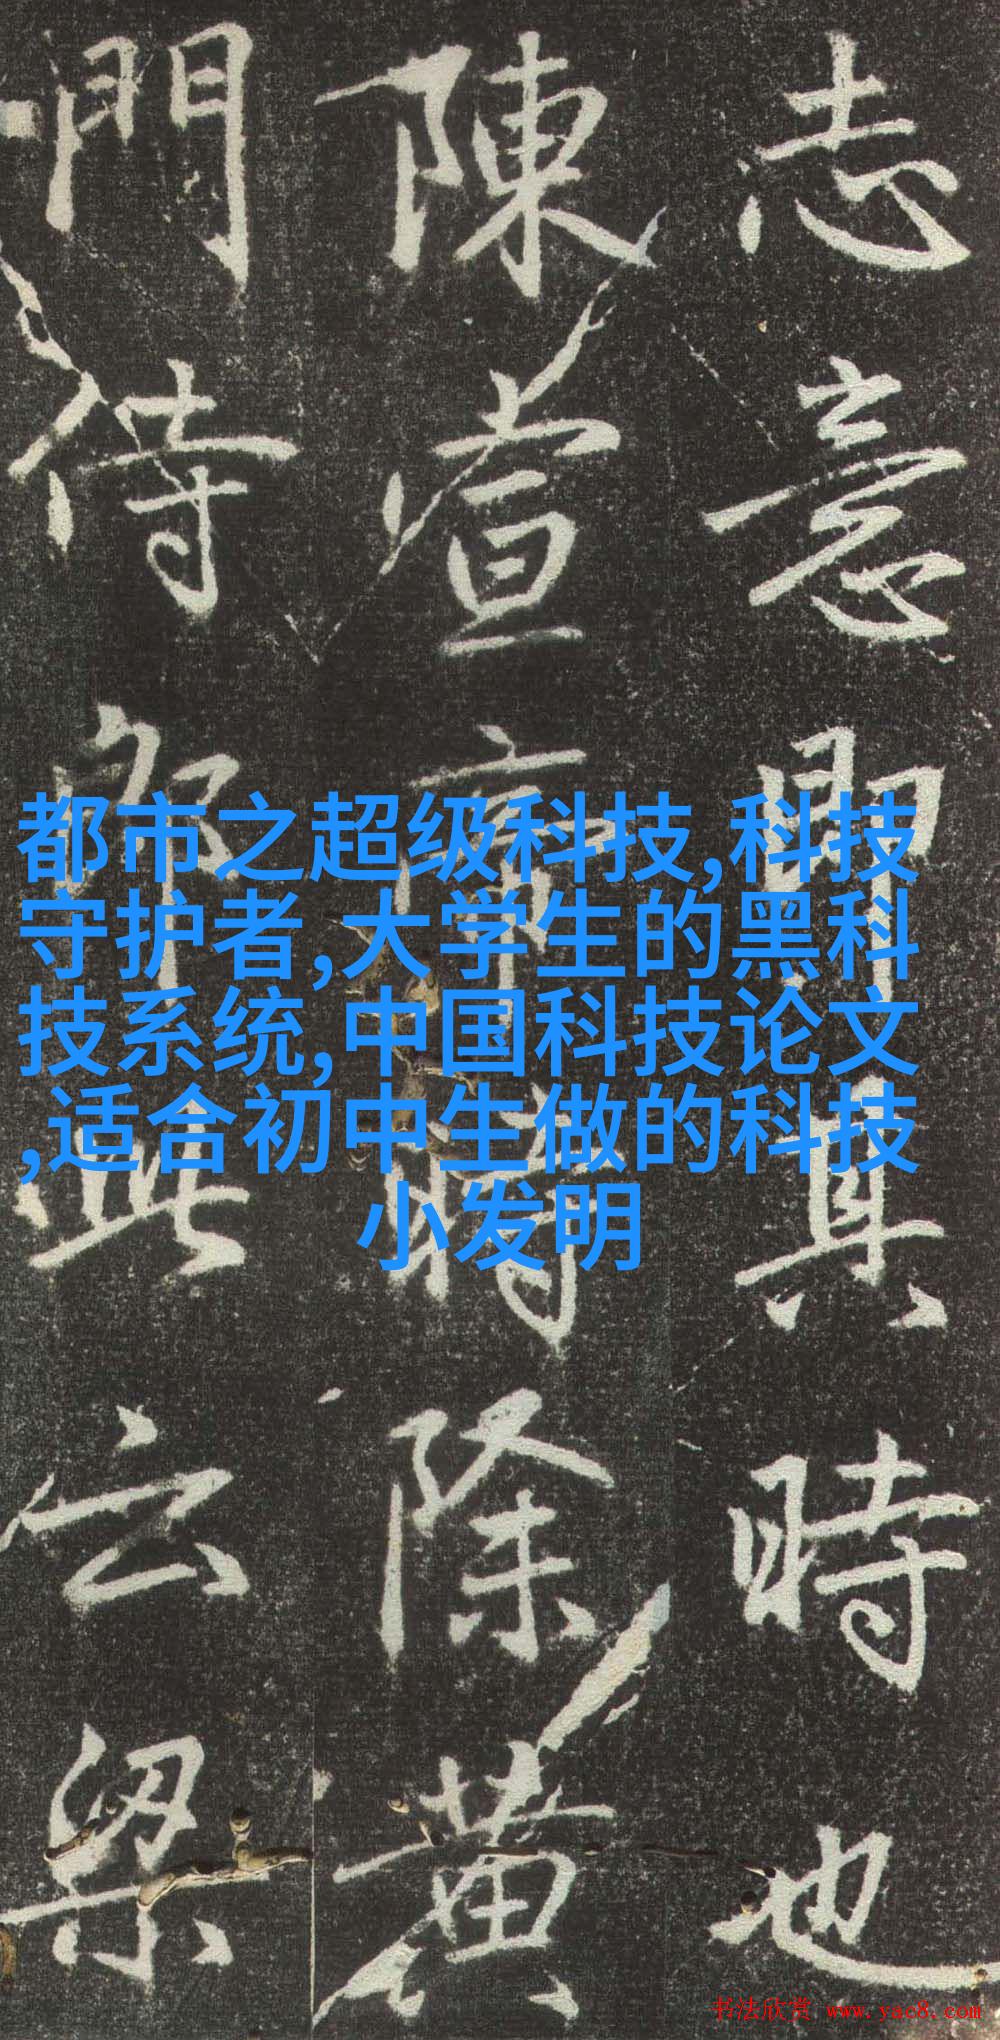 志意即真時也
陳宣帝時除黄
門侍郎此云梁
都市之超级科技,科技
守护者,大学生的黑科
技系统,中国科技论文
,适合初中生做的科技
小发明
书法欣赏 www.yac8.com